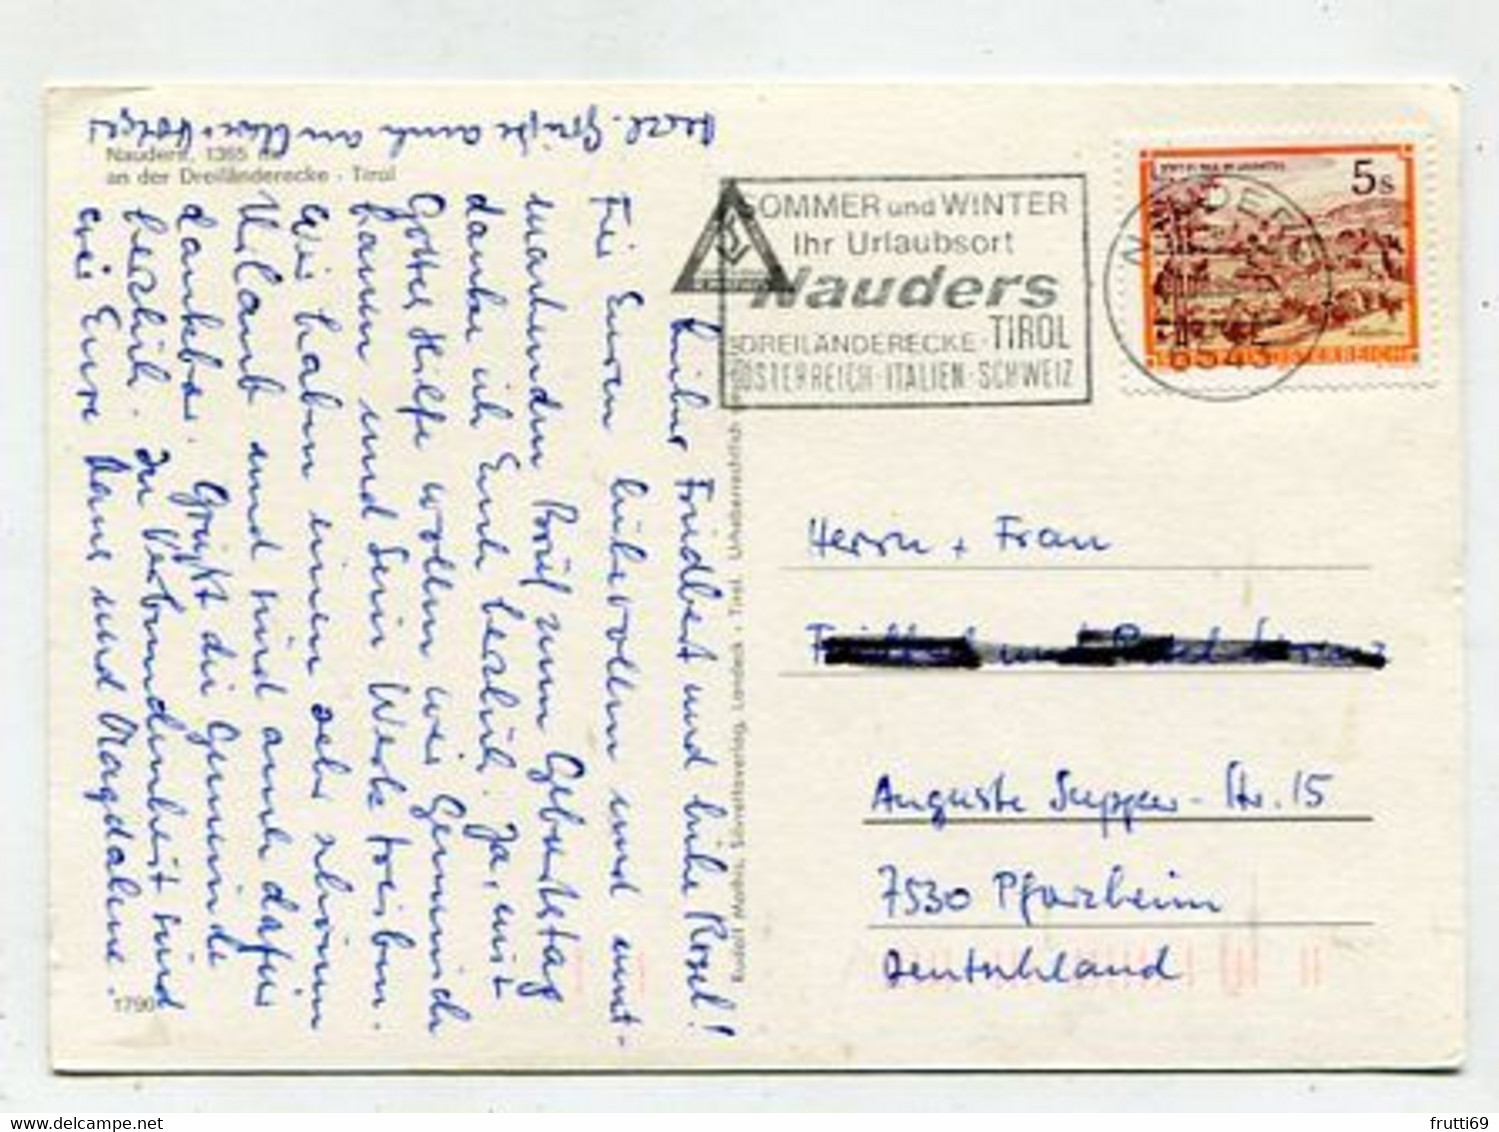 Herzl. Grüße auch an
Nauders, 1365 m
an der Dreiländerecke - Tirol
Lieber Fridbert und liebe Rosel!
Für Euren liebevollen und munt-
machenden Brief zum Geburtstag
danke ich Euch herzlich. Ja, mit
Gottes Hilfe wollen wir Gemeinde
bauen und Sein Werk treiben.
Wir haben einen sehr schönen
Urlaub und sind auch dafür
dankbar. Grüßt die Gemeinde
herzlich. In Verbundenheit sind
wir Eure Hans und Magdalene.
1790
Rudolf Mathis, Schreibwarenverlag, Landeck • Tirol
Urheberrechtlich
SOMMER und WINTER
Ihr Urlaubsort
Nauders
TIROL
DREILÄNDERECKE -
ÖSTERREICH - ITALIEN - SCHWEIZ
NAUDERS
6543
5s
Herrn + Frau
Auguste Supper-Str. 15
7530 Pforzheim
Deutschland
frutti69
delcampe.net